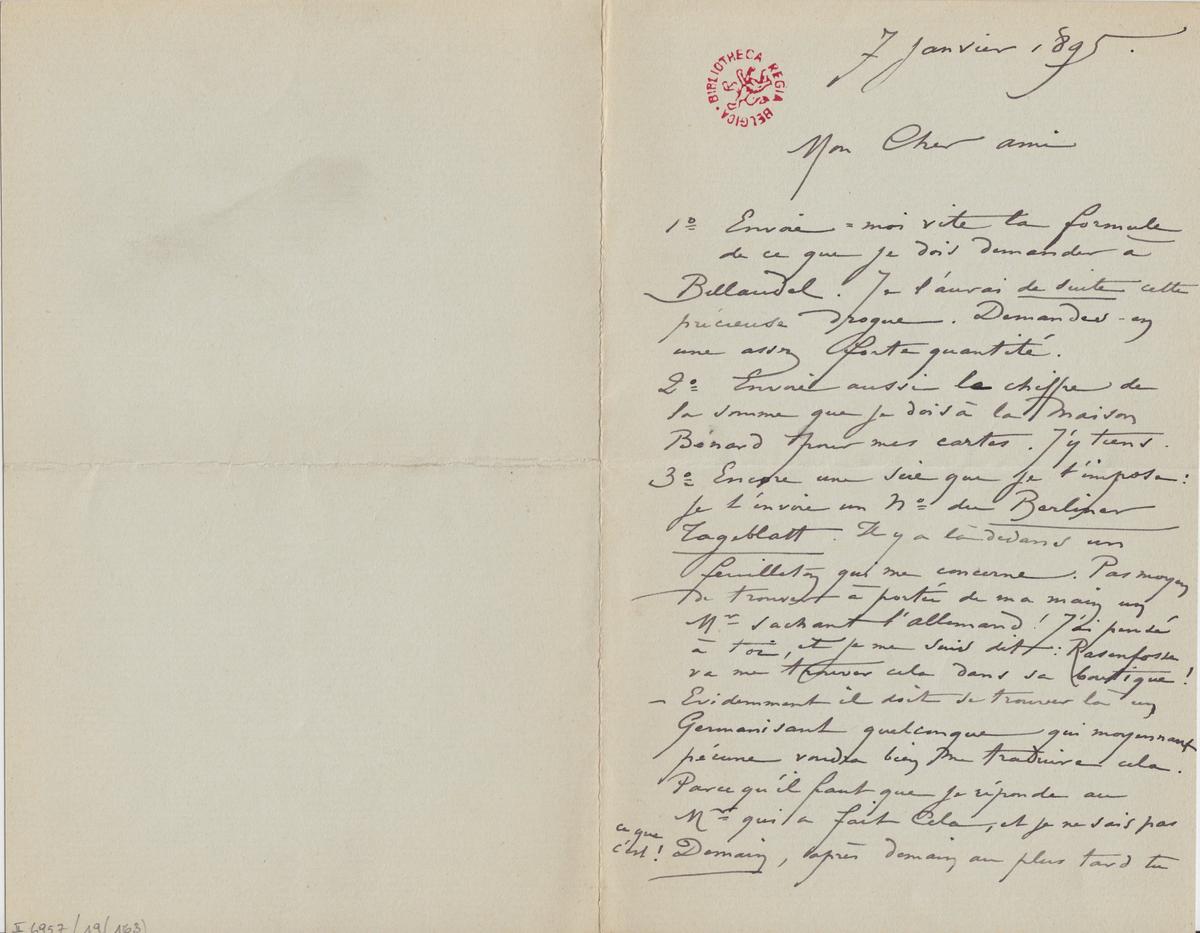 7 Janvier 1895.
BIBLIOTHECA REGIA BELGICA
Mon Cher ami
1º Envoie-moi vite ta formule
de ce que je dois demander à
Billaudel. Je l'aurai de suite cette
précieuse drogue. Demandes-en
une assez forte quantité.
2º Envoie aussi le chiffre de
la somme que je dois à la Maison
Bénard pour mes cartes. J'y tiens.
3º Encore une scie que je t'impose:
je t'envoie un Nº du Berliner
Tageblatt. Il y a là dedans un
feuilleton qui me concerne. Pas moyen
de trouver à portée de ma main un
Mr sachant l'allemand! J'ai pensé
à toi, et je me suis dit: Rasenfosse
va me trouver cela dans sa boutique!
— Evidemment il doit se trouver là un
Germanisant quelconque qui moyennant
pécune voudra bien me traduire cela.
Parce qu'il faut que je réponde au
Mr qui a fait Cela, et je ne sais pas
ce que
c'est! Demain, après demain au plus tard tu
II 6957/19(163)